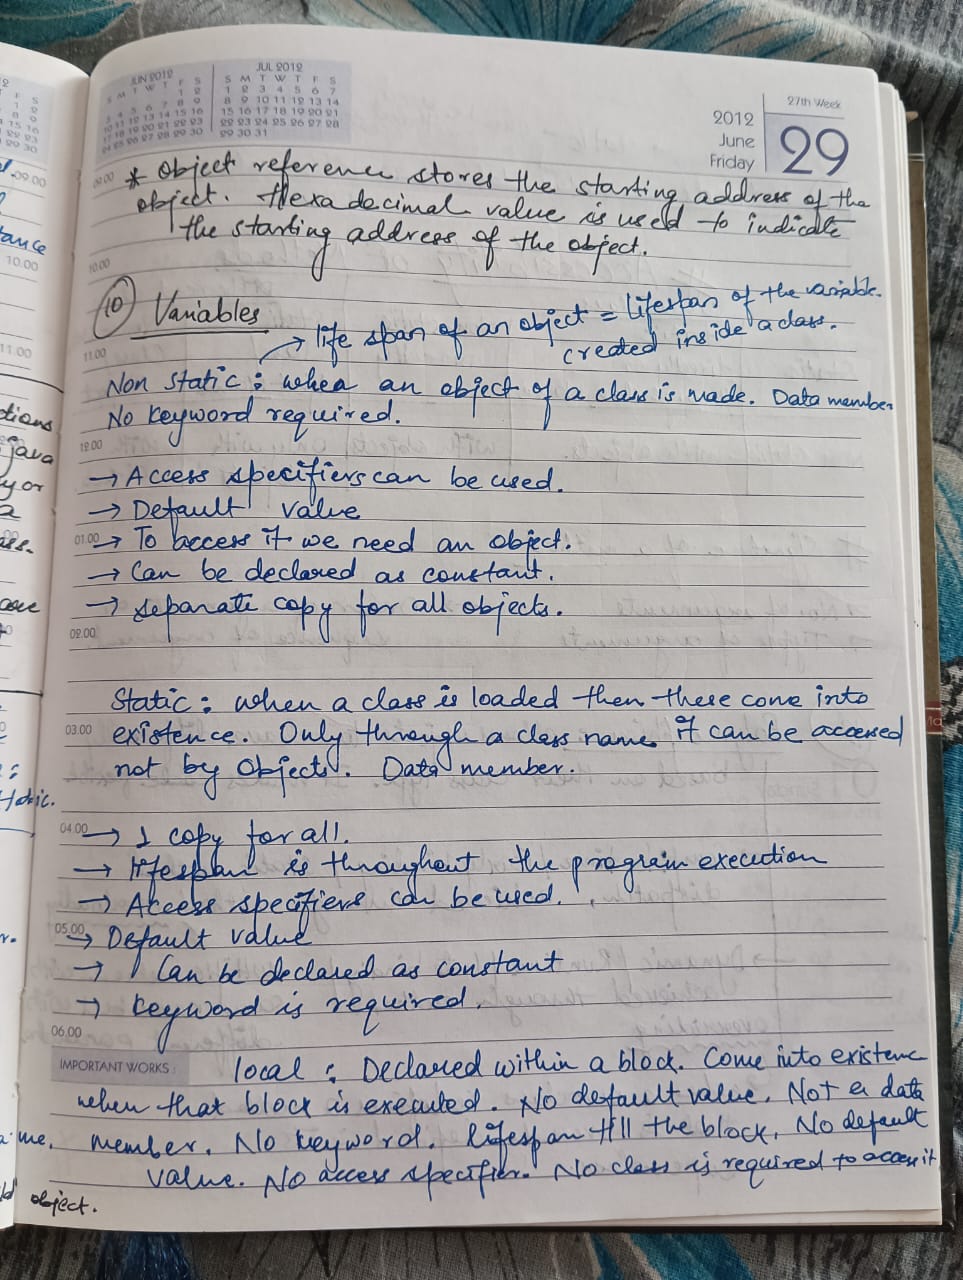 JUN 2012
S M T W T F S
1 2
3 4 5 6 7 8 9
10 11 12 13 14 15 16
17 18 19 20 21 22 23
24 25 26 27 28 29 30
JUL 2012
S M T W T F S
1 2 3 4 5 6 7
8 9 10 11 12 13 14
15 16 17 18 19 20 21
22 23 24 25 26 27 28
29 30 31
2012
June
Friday
27th Week
29
09.00 * Object reference stores the starting address of the
object. Hexadecimal value is used to indicate
the starting address of the object.
10.00
(10) Variables
→ life span of an object = lifespan of the variable
created inside a class.
11.00
Non Static : when an object of a class is made. Data member
No keyword required.
12.00
→ Access specifiers can be used.
→ Default value
01.00 → To access it we need an object.
→ Can be declared as constant.
→ separate copy for all objects.
02.00
Static : when a class is loaded then these come into
03.00 existence. Only through a class name it can be accessed
not by objects. Data member.
04.00 → 1 copy for all.
→ lifespan is throughout the program execution
→ Access specifiers can be used.
05.00 → Default value
→ Can be declared as constant
→ keyword is required.
06.00
IMPORTANT WORKS :
local : Declared within a block. Come into existence
when that block is executed. No default value. Not a data
member. No keyword. lifespan till the block. No default
value. No access specifier. No class is required to access it
object.